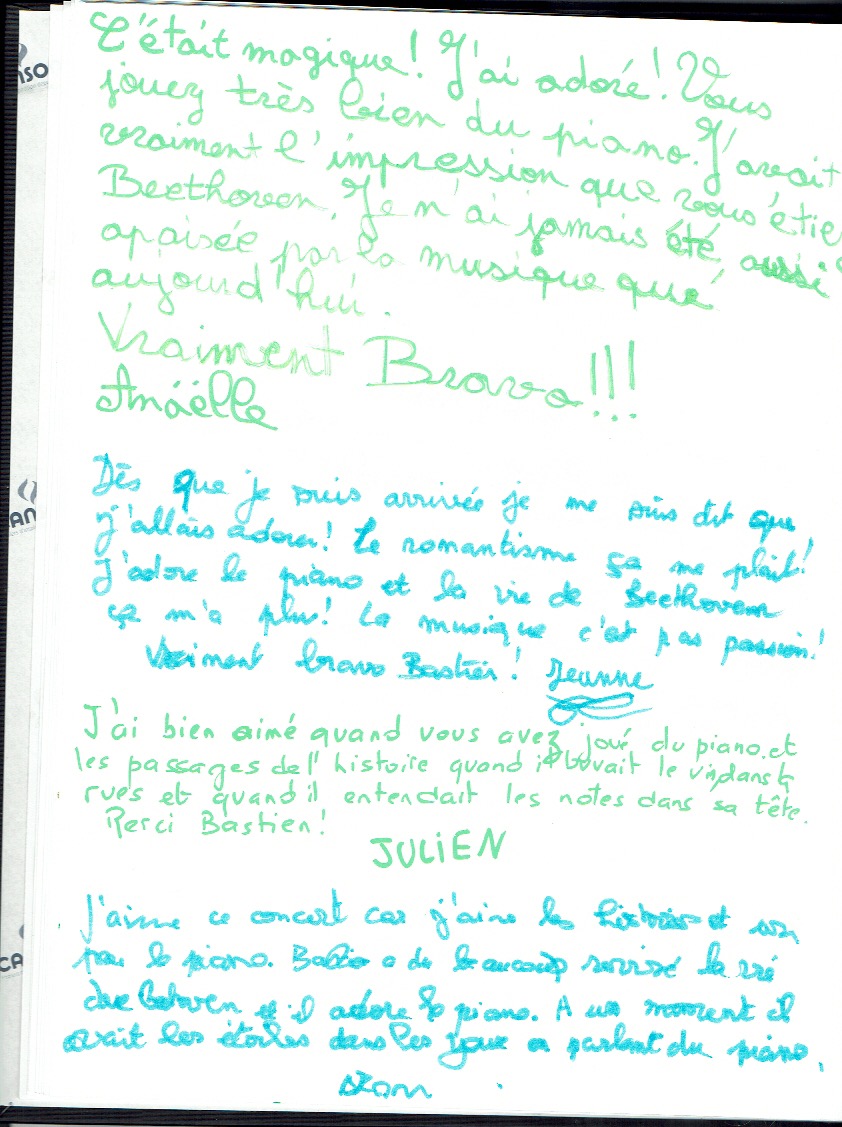 C'était magique! J'ai adoré! Vous
jouez très bien du piano. J'avait
vraiment l'impression que vous étie
Beethoven. Je n'ai jamais été aussi
apaisée par la musique que
aujourd'hui.
Vraiment Bravo!!!
Anäëlle
Dès que je suis arrivée je me suis dit que
j'allais adorer! Le romantisme ça me plait!
J'adore le piano et la vie de Beethoven
ça m'a plus! La musique c'est pas passion!
Vraiment bravo Bastien! Jeanne
J'ai bien aimé quand vous avez joué du piano et
les passages de l'histoire quand il buvait le vin dans
rues et quand il entendait les notes dans sa tête.
Merci Bastien!
JULiEN
J'aime ce concert car j'aime les et
le piano. a du beaucoup la
et il adore le piano. A un moment il
avait les étoiles dans les yeue parlent du piano.
CANSON